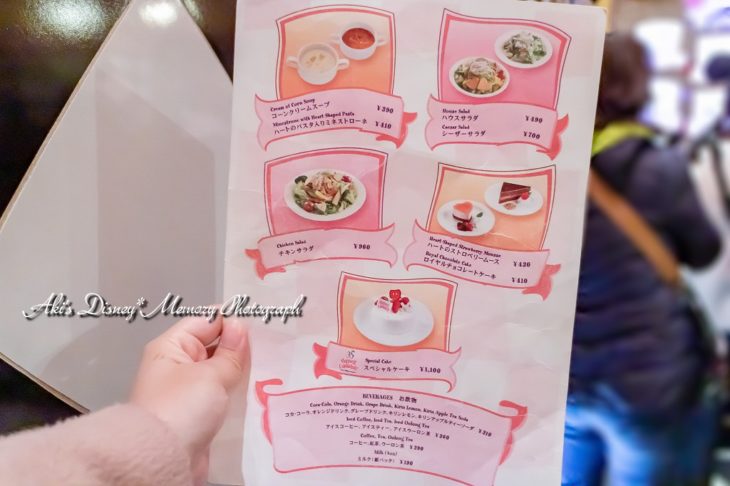 Cream of Corn Soup
コーンクリームスープ ¥390
Minestrone with Heart Shaped Pasta
ハートのパスタ入りミネストローネ ¥410
House Salad
ハウスサラダ ¥490
Caesar Salad
シーザーサラダ ¥700
Chicken Salad
チキンサラダ ¥960
Heart Shaped Strawberry Mousse
ハートのストロベリームース ¥430
Royal Chocolate Cake
ロイヤルチョコレートケーキ ¥410
Aki's Disney*Memory Photograph
35
Special Cake
スペシャルケーキ ¥1,100
BEVERAGES お飲物
Coca-Cola, Orange Drink, Grape Drink, Kirin Lemon, Kirin Apple Tea Soda
コカ・コーラ、オレンジドリンク、グレープドリンク、キリンレモン、キリンアップルティーソーダ ¥310
Iced Coffee, Iced Tea, Iced Oolong Tea
アイスコーヒー、アイスティー、アイスウーロン茶 ¥360
Coffee, Tea, Oolong Tea
コーヒー、紅茶、ウーロン茶 ¥290
Milk
ミルク(紙パック) ¥190